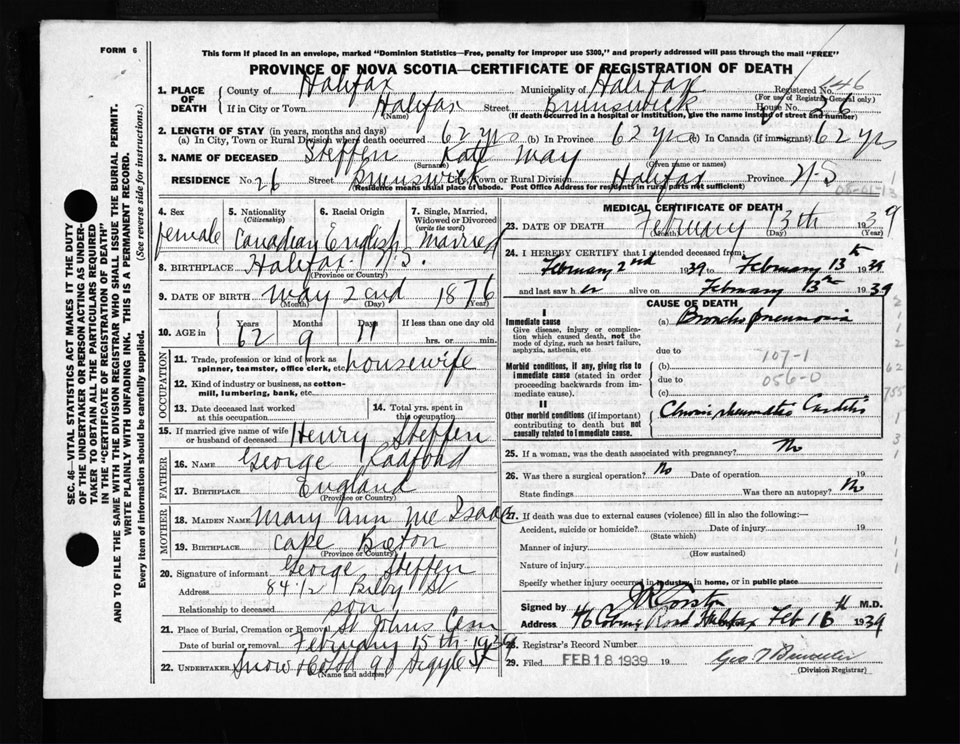 FORM 6
This form if placed in an envelope, marked "Dominion Statistics—Free, penalty for improper use $300," and properly addressed will pass through the mail "FREE"
PROVINCE OF NOVA SCOTIA—CERTIFICATE OF REGISTRATION OF DEATH
SEC. 46—VITAL STATISTICS ACT MAKES IT THE DUTY
OF THE UNDERTAKER OR PERSON ACTING AS UNDER-
TAKER TO OBTAIN ALL THE PARTICULARS REQUIRED
IN THE "CERTIFICATE OF REGISTRATION OF DEATH"
AND TO FILE THE SAME WITH THE DIVISION REGISTRAR WHO SHALL ISSUE THE BURIAL PERMIT.
WRITE PLAINLY WITH UNFADING INK. THIS IS A PERMANENT RECORD.
Every item of Information should be carefully supplied. (See reverse side for instructions.)
1. PLACE OF DEATH County of Halifax Municipality of Halifax Registered No. 246
(For use of Registrar General only)
If in City or Town Halifax Street Brunswick House No. 26
(Name) (If death occurred in a hospital or institution, give the name instead of street and number)
2. LENGTH OF STAY (in years, months and days)
(a) In City, Town or Rural Division where death occurred 62 yrs (b) In Province 62 yrs (c) In Canada (if immigrant) 62 yrs
3. NAME OF DECEASED Steffen Kate May
(Surname) (Given name or names)
RESIDENCE No. 26 Street Brunswick City, Town or Rural Division Halifax Province N-S
(Residence means usual place of abode. Post Office Address for residents in rural parts not sufficient)
4. Sex female
5. Nationality (Citizenship) Canadian
6. Racial Origin English
7. Single, Married, Widowed or Divorced (write the word) Married
8. BIRTHPLACE Halifax N.S.
(Province or Country)
9. DATE OF BIRTH May 2nd 1876
(Month) (Day)
10. AGE in Years 62 Months 9 Days 11 If less than one day
hrs. or min.
OCCUPATION
11. Trade, profession or kind of work as spinner, teamster, office clerk, etc. housewife
12. Kind of industry or business, as cotton-mill, lumbering, bank, etc.
13. Date deceased last worked at this occupation
14. Total yrs. spent in this occupation
15. If married give name of wife or husband of deceased Henry Steffen
FATHER
16. NAME George Radford
17. BIRTHPLACE England
(Province or Country)
MOTHER
18. MAIDEN NAME Mary Ann Mc Isaac
19. BIRTHPLACE Cape Breton
(Province or Country)
20. Signature of informant George Steffen
Address 84 1/2 St
Relationship to deceased son
21. Place of Burial, Cremation or Removal St Johns Cem
Date of burial or removal February 15th-1939
22. UNDERTAKER Snow & Co 90 Argyle St
(Name and address)
MEDICAL CERTIFICATE OF DEATH
23. DATE OF DEATH February 13th 1939
(Month) (Day) (Year)
24. I HEREBY CERTIFY that I attended deceased from
February 2nd 1939 to February 13th 1939
and last saw her alive on February 13th 1939
CAUSE OF DEATH
I
Immediate cause
Give disease, injury or complication which caused death, not the mode of dying, such as heart failure, asphyxia, asthenia, etc
(a) Broncho pneumonia
due to
107-1
Morbid conditions, if any, giving rise to immediate cause (stated in order proceeding backwards from immediate cause).
(b)
due to
056-0
(c)
II
Other morbid conditions (if important) contributing to death but not causally related to immediate cause.
Chronic rheumatic Carditis
25. If a woman, was the death associated with pregnancy? No
26. Was there a surgical operation? No Date of operation 19
State findings Was there an autopsy? No
27. If death was due to external causes (violence) fill in also the following:—
Accident, suicide or homicide? Date of injury 19
(State which)
Manner of injury
(How sustained)
Nature of injury
Specify whether injury occurred in industry, in home, or in public place
Signed by M.D.
Address 46 Road Halifax Feb 16th 1939
28. Registrar's Record Number
29. Filed FEB 18 1939 19
(Division Registrar)